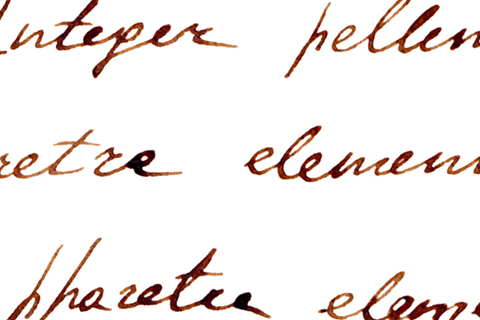 Integer pellen
retre elemen
pharetre eleme